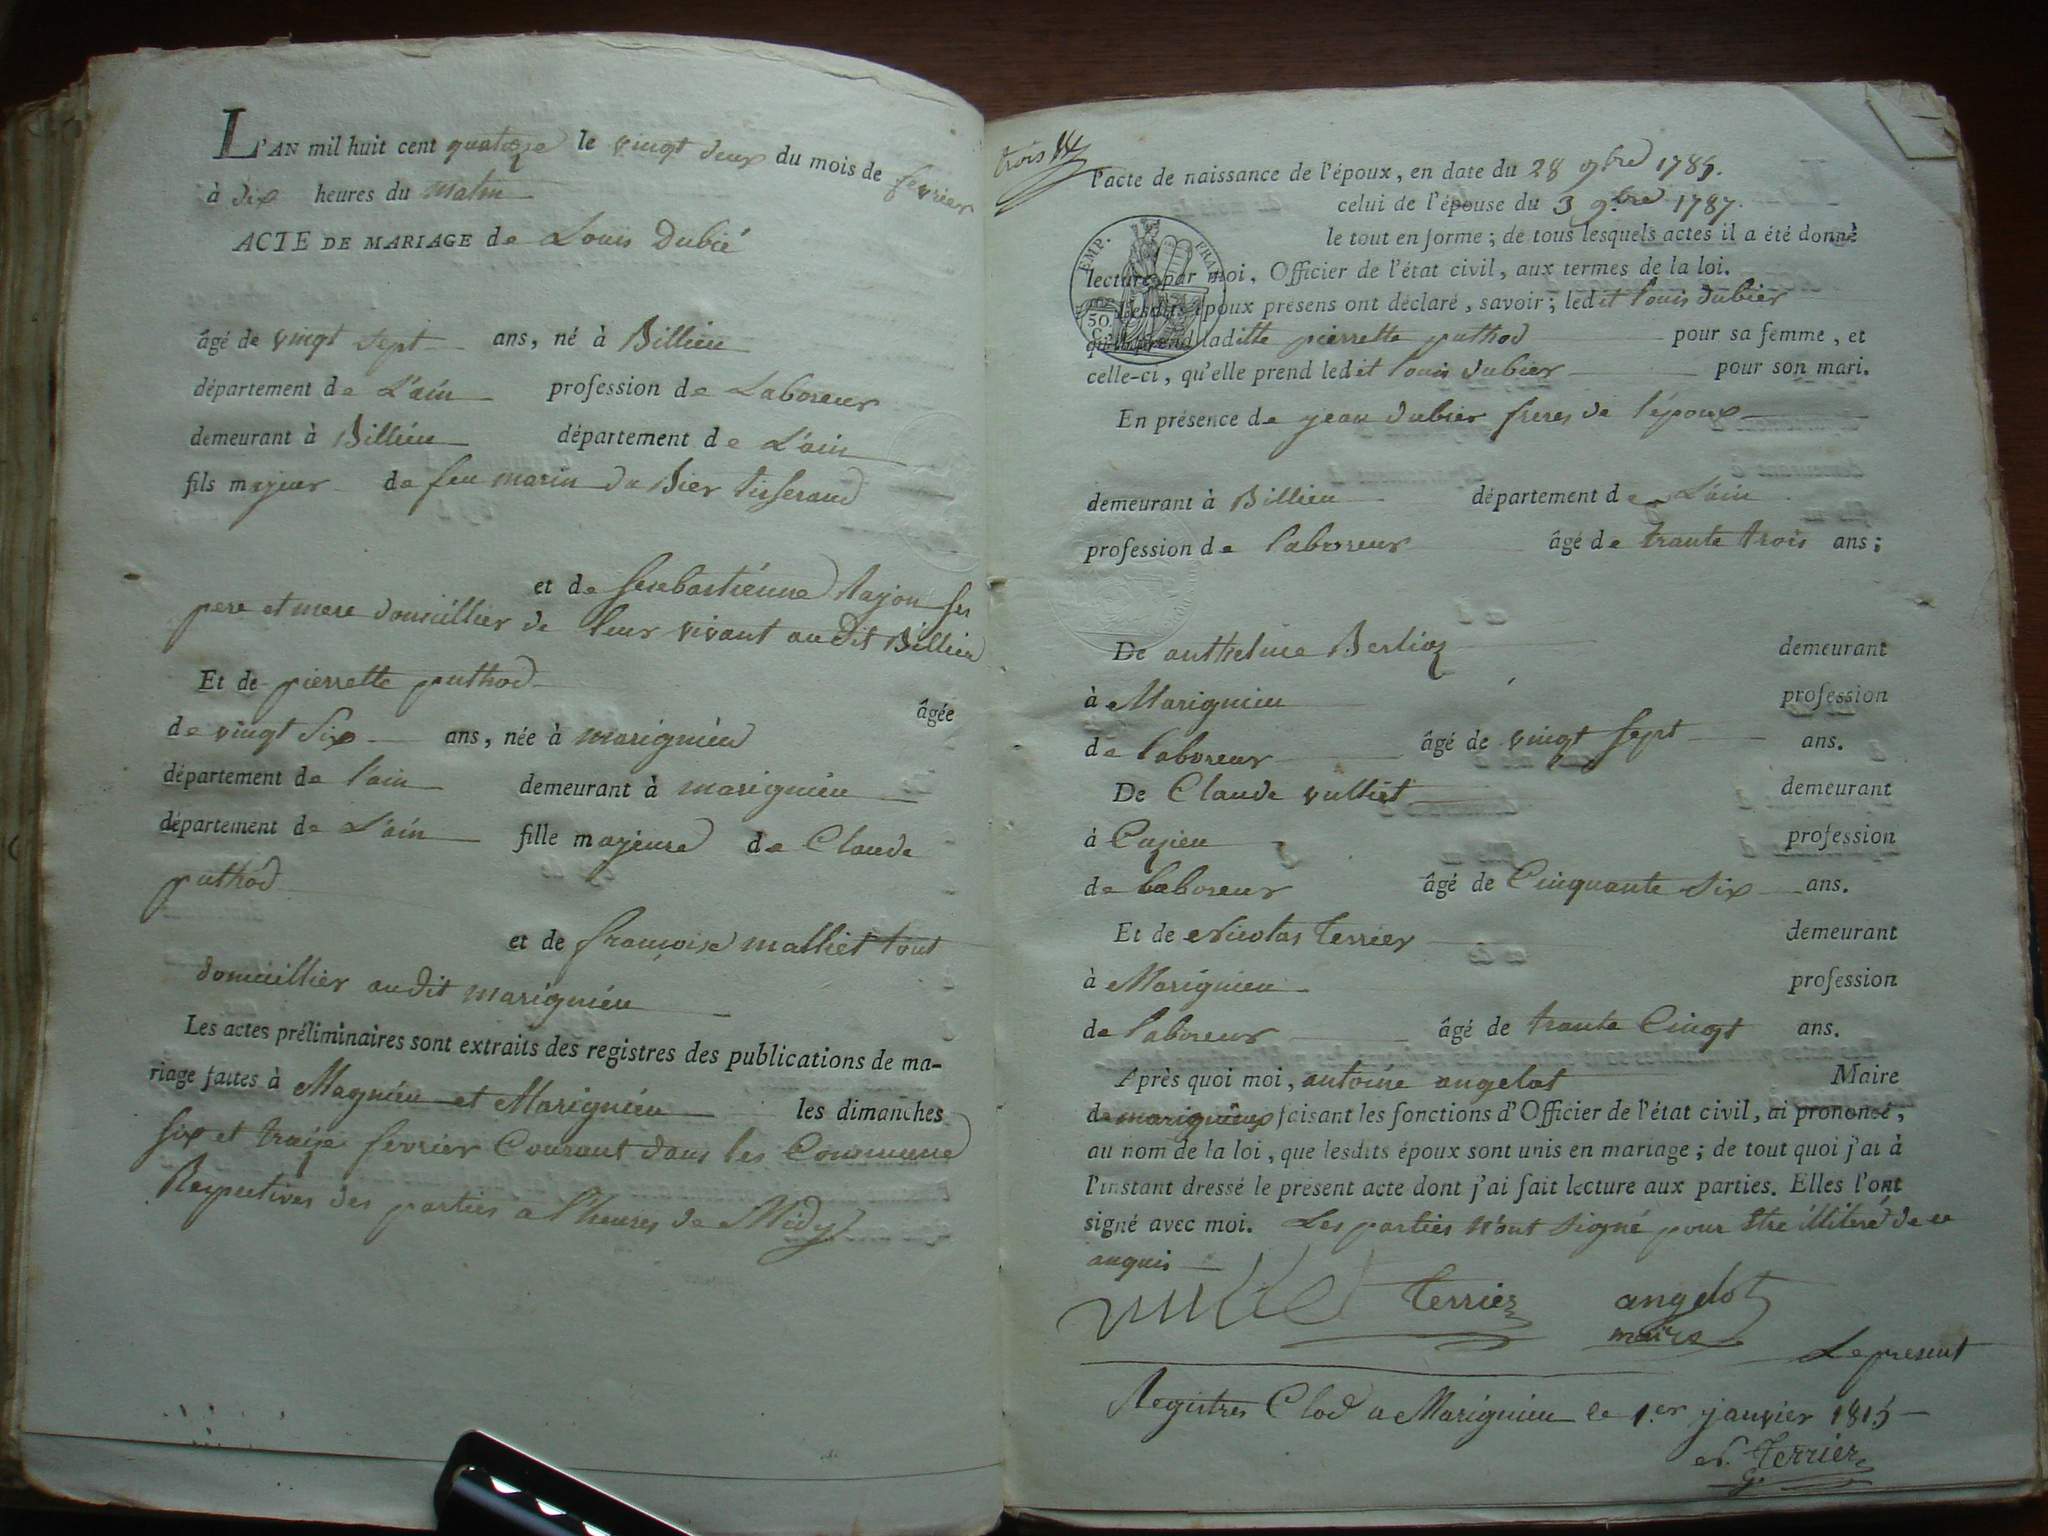 L'AN mil huit cent quatorze le vingt deux du mois de fevrier
à dix heures du matin
ACTE DE MARIAGE de Louis Dubié
âgé de vingt sept ans, né à Billieu
département de L'ain profession de Laboreur
demeurant à Billieu département de L'ain
fils majeur de feu marin du Bier tisserand
et de Sesebastiénne Rajon ses
pere et mere domicillier de leur vivant audit Billieu
Et de pierrette puthod
âgée
de vingt Six ans, née à marignieu
département de l'ain demeurant à marignieu
département de L'ain fille majeure de Claude
puthod
et de françoise malliet tout
domicillier audit marignieu
Les actes préliminaires sont extraits des registres des publications de ma-
riage faites à Magnieu et Marignieu les dimanches
six et traize fevrier Courant dans les Commune
Respectives des parties a l'heures de Midy
trois
l'acte de naissance de l'époux, en date du 28 9bre 1785.
celui de l'épouse du 3 9.bre 1787.
le tout en forme; de tous lesquels actes il a été donné
lecture par moi, Officier de l'état civil, aux termes de la loi.
EMP. FRAN
50. C.
Lesdits époux présens ont déclaré, savoir; ledit louis dubier
qu'il prend laditte pierrette puthod pour sa femme, et
celle-ci, qu'elle prend ledit louis dubier pour son mari.
En présence de jean dubier freres de l'époux
demeurant à Billieu département de L'ain
profession de laboreur âgé de trante trois ans;
De anthelme Berlioz demeurant
à Marignieu profession
de laboreur âgé de vingt sept ans.
De Claude vulliet demeurant
à Cuzieu profession
de laboreur âgé de Cinquante Six ans.
Et de Nicolas Terrier demeurant
à Marignieu profession
de laboreur âgé de trante Cinqt ans.
Après quoi moi, antoine angelot Maire
de marignieux faisant les fonctions d'Officier de l'état civil, ai prononcé,
au nom de la loi, que lesdits époux sont unis en mariage; de tout quoi j'ai à
l'instant dressé le présent acte dont j'ai fait lecture aux parties. Elles l'ont
signé avec moi. Les parties n'ont signé pour être illiteré de ce
anquis
vulliet Terrier angelot
maire
Le present
Registres Clod a Marignieu le 1.er janvier 1815
N. Terrier